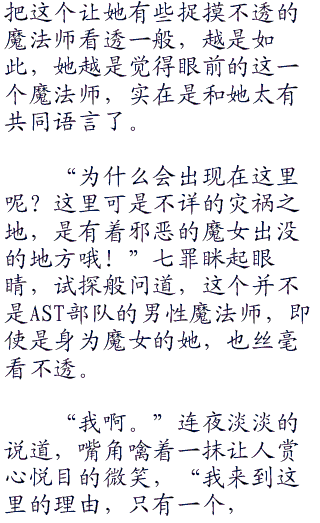 把这个让她有些捉摸不透的
魔法师看透一般，越是如
此，她越是觉得眼前的这一
个魔法师，实在是和她太有
共同语言了。
“为什么会出现在这里
呢？这里可是不详的灾祸之
地，是有着邪恶的魔女出没
的地方哦！”七罪眯起眼
睛，试探般问道，这个并不
是AST部队的男性魔法师，即
使是身为魔女的她，也丝毫
看不透。
“我啊。”连夜淡淡的
说道，嘴角噙着一抹让人赏
心悦目的微笑，“我来到这
里的理由，只有一个，